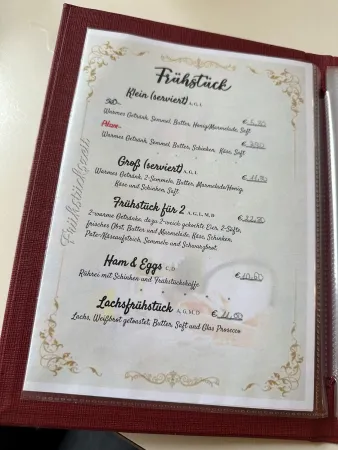 Frühstück
Klein (serviert) A, G, L
Warmes Getränk, Semmel, Butter, Honig/Marmelade, Saft
Warmes Getränk, Semmel, Butter, Schinken, Käse, Saft
Groß (serviert) A, G, L
Warmes Getränk, 2-Semmeln, Butter, Marmelade/Honig,
Käse und Schinken, Saft
Frühstück für 2 A, G, L, M, D
2-warme Getränke, dazu 2-weich gekochte Eier, 2-Säfte,
frisches Obst, Butter und Marmelade, Käse, Schinken,
Pute-Käseaufstrich, Semmeln und Schwarzbrot.
Ham & Eggs C, D
Rührei mit Schinken und Frühstückskaffe
€ 10,60
Lachsfrühstück A, G, M, D
Lachs, Weißbrot getoastet, Butter, Saft und Glas Prosecco